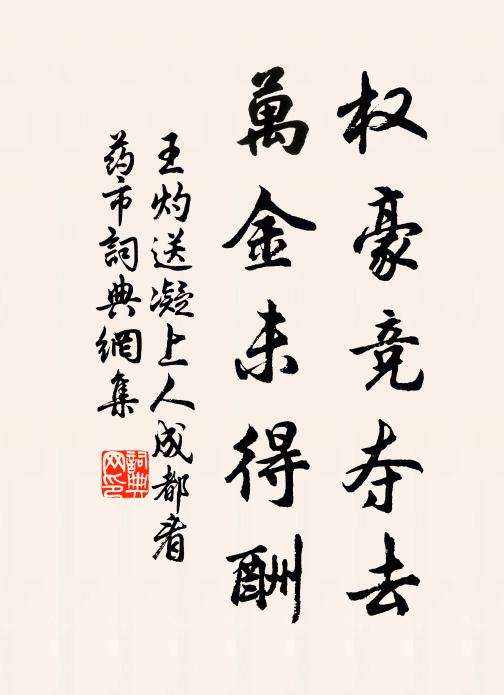 权豪竞夺去
萬金未得酬
王灼送凝上人成都看
药市詞典網集
詞典网印